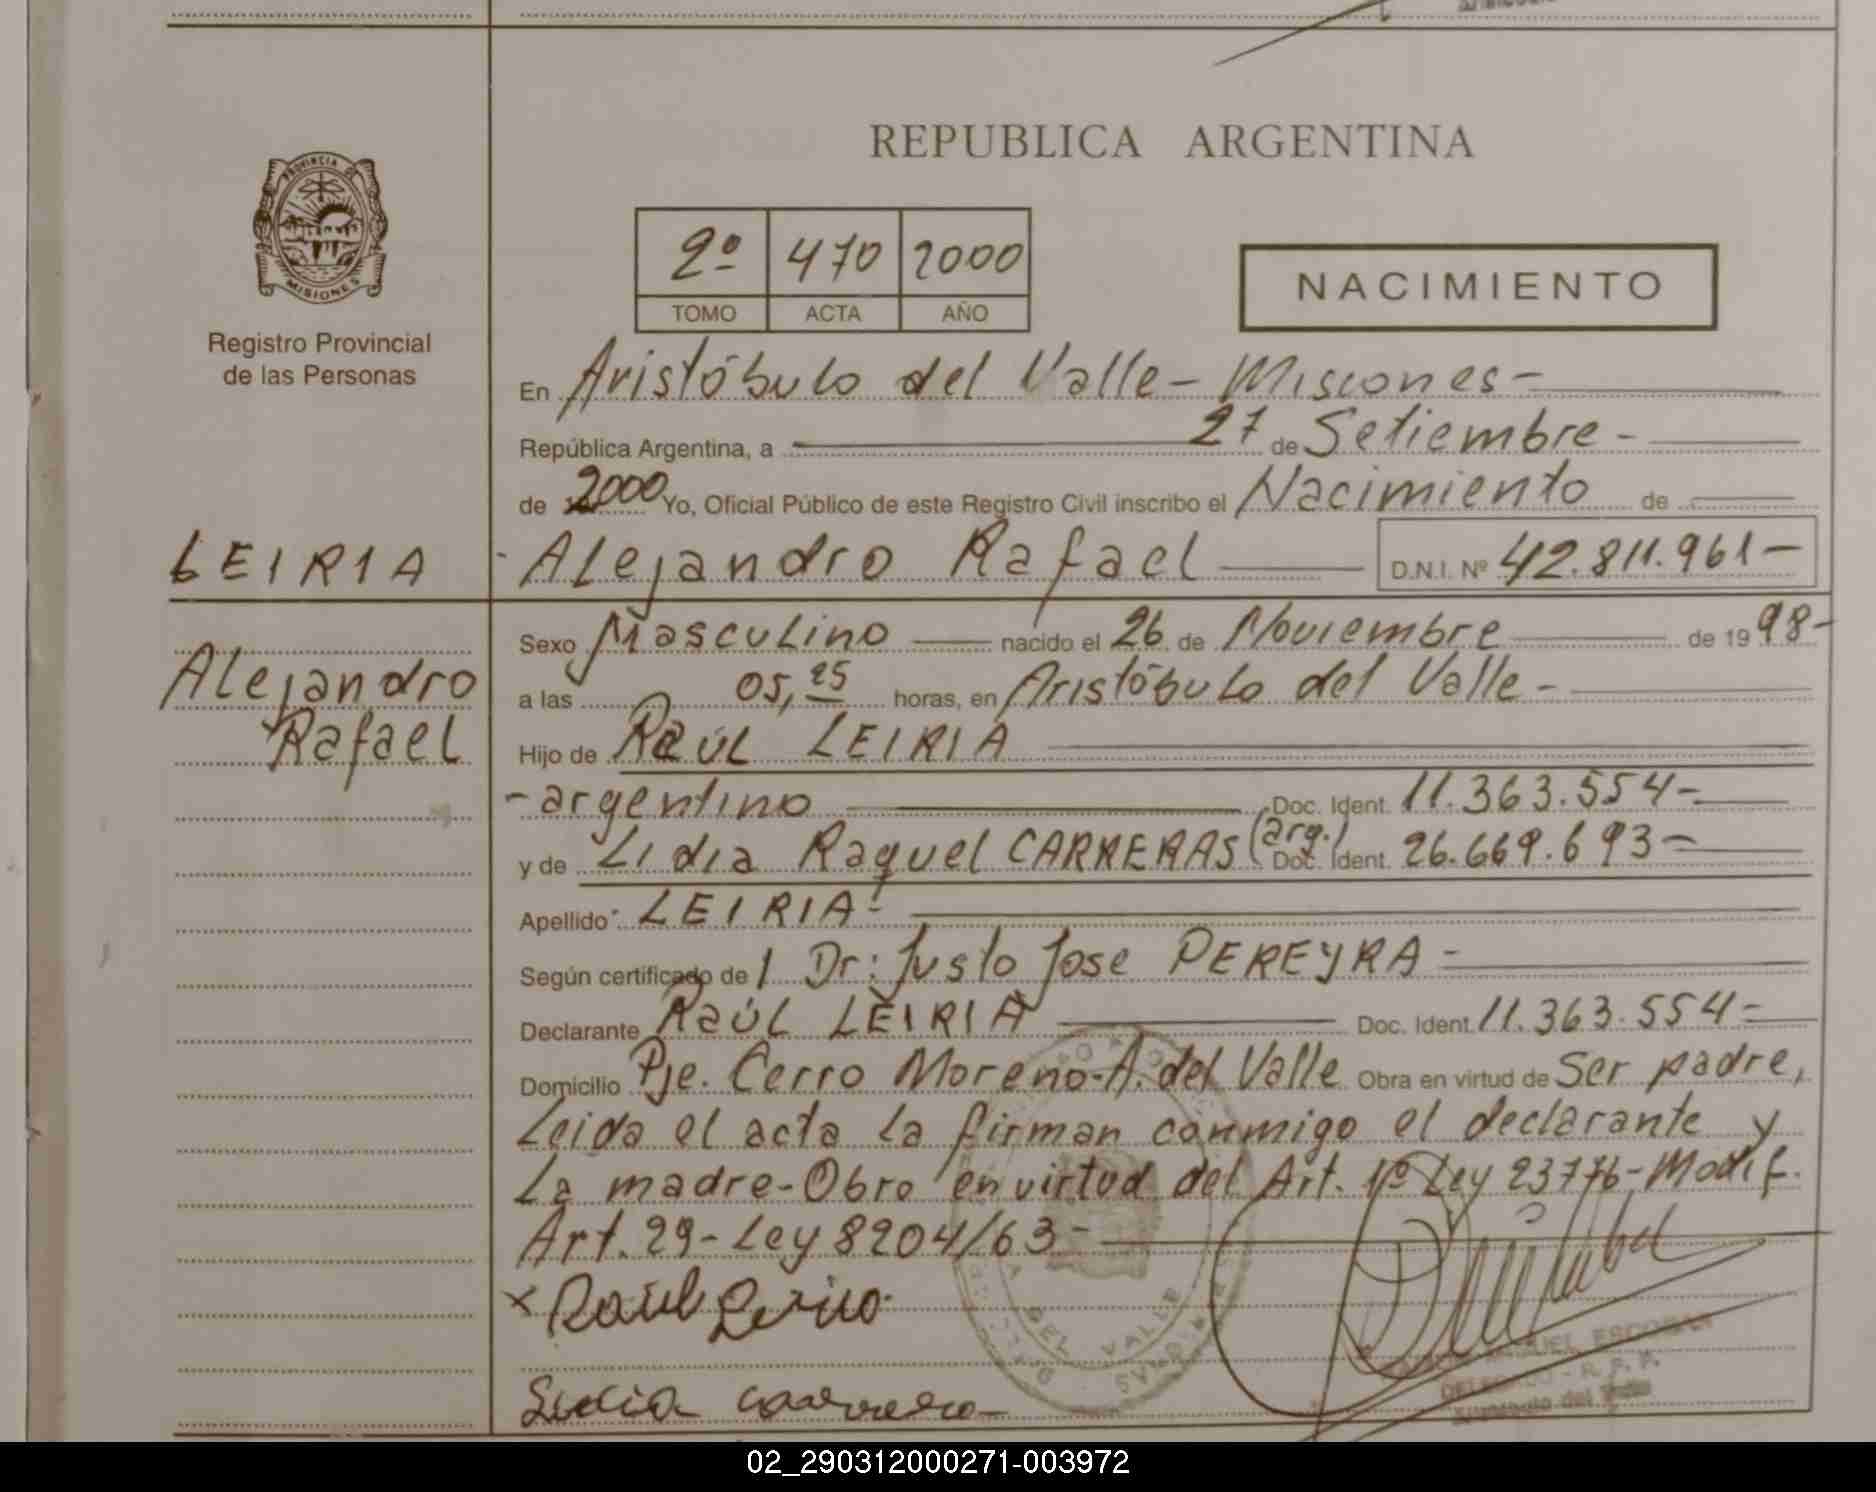 REPUBLICA ARGENTINA
PROVINCIA DE
MISIONES
Registro Provincial
de las Personas
2º 470 2000
TOMO ACTA AÑO
NACIMIENTO
En Aristóbulo del Valle - Misiones -
República Argentina, a 27 de Setiembre -
de 2000 Yo, Oficial Público de este Registro Civil inscribo el Nacimiento de
LEIRIA - Alejandro Rafael D.N.I. Nº 42.811.961 -
Alejandro
Rafael
Sexo Masculino nacido el 26 de Noviembre de 1998 -
a las 05,25 horas, en Aristóbulo del Valle -
Hijo de Raúl LEIRIA
- argentino Doc. Ident. 11.363.554 -
y de Lidia Raquel CARRERAS (arg.) Doc. Ident. 26.669.693 -
Apellido LEIRIA -
Según certificado de / Dr: Justo Jose PEREYRA -
Declarante Raúl LEIRIA Doc. Ident. 11.363.554 -
Domicilio Pje. Cerro Moreno - A. del Valle Obra en virtud de Ser padre,
Leida el acta la firman conmigo el declarante y
La madre - Obro en virtud del Art. 1º Ley 23776 - Modif.
Art. 29 - Ley 8204/63 -
x Raúl Leiria
DEL VALLE
ESCOBAR
Aristóbulo del Valle
02_290312000271-003972